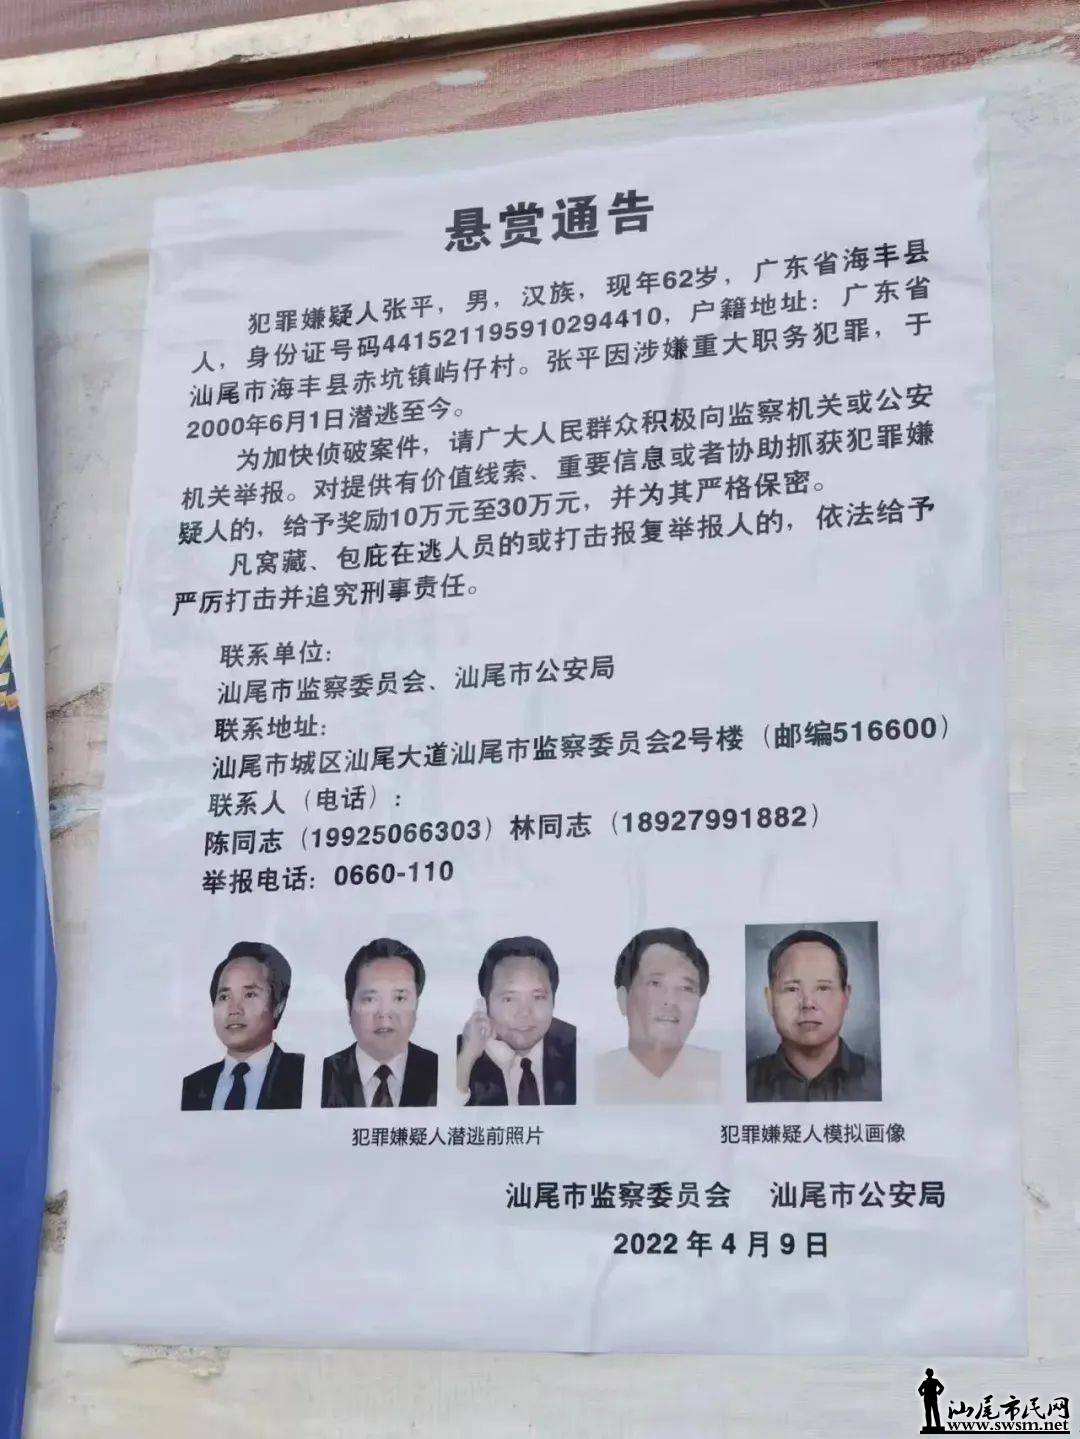 悬赏通告
犯罪嫌疑人张平，男，汉族，现年62岁，广东省海丰县
人，身份证号码441521195910294410，户籍地址：广东省
汕尾市海丰县赤坑镇屿仔村。张平因涉嫌重大职务犯罪，于
2000年6月1日潜逃至今。
为加快侦破案件，请广大人民群众积极向监察机关或公安
机关举报。对提供有价值线索、重要信息或者协助抓获犯罪嫌
疑人的，给予奖励10万元至30万元，并为其严格保密。
凡窝藏、包庇在逃人员的或打击报复举报人的，依法给予
严厉打击并追究刑事责任。
联系单位：
汕尾市监察委员会、汕尾市公安局
联系地址：
汕尾市城区汕尾大道汕尾市监察委员会2号楼（邮编516600）
联系人（电话）：
陈同志（19925066303）林同志（18927991882）
举报电话：0660-110
犯罪嫌疑人潜逃前照片 犯罪嫌疑人模拟画像
汕尾市监察委员会 汕尾市公安局
2022年4月9日
汕尾市民网
www.swsm.net